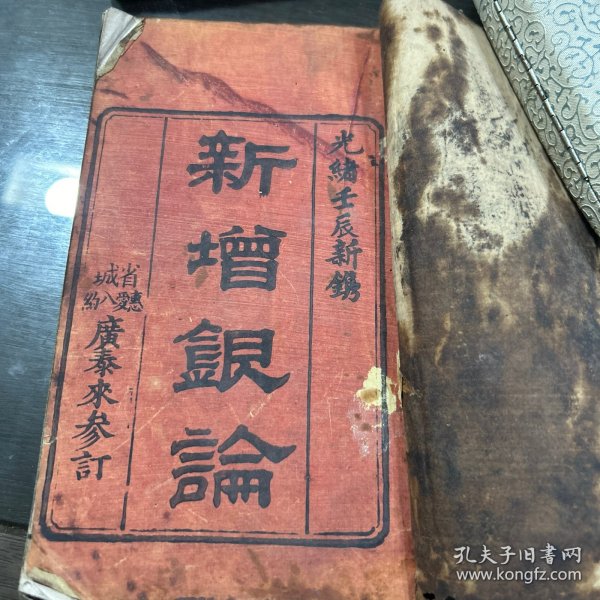 光緒壬辰新鐫
新增銀論
省城
八約
廣泰來參訂
孔夫子旧书网
www.kongfz.com